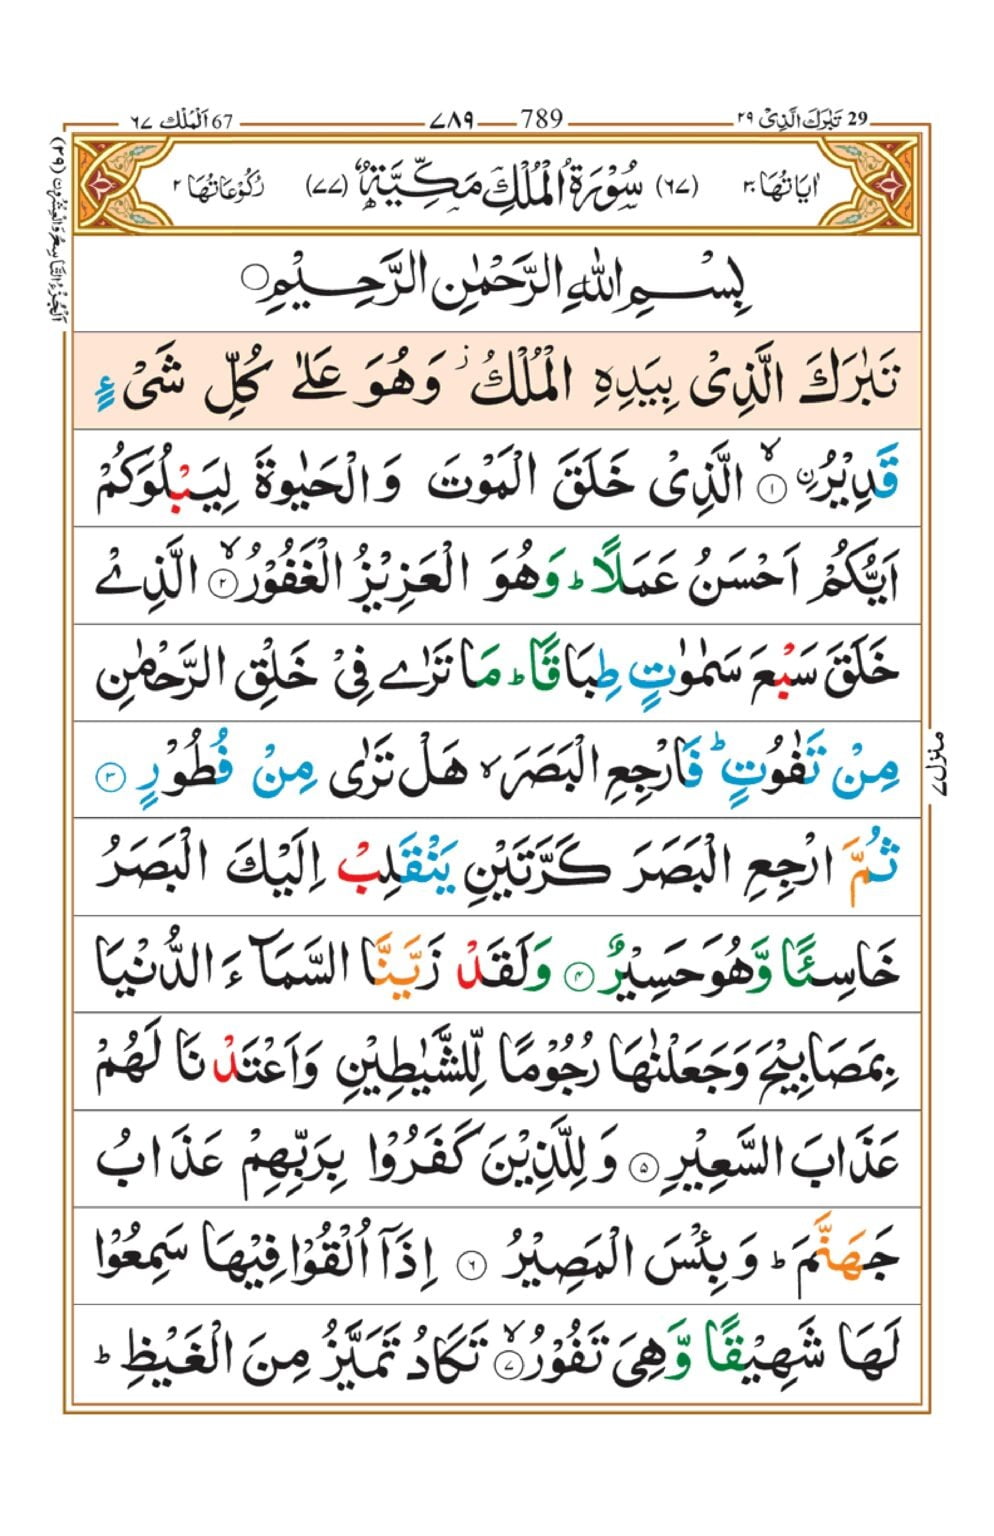 29 تَبٰرَكَ الَّذِیْ ٢٩ 789 ٧٨٩ 67 اَلْمُلْك ٦٧
اٰيَاتُهَا ٣٠ (٦٧) سُوْرَةُ الْمُلْكِ مَكِّيَّةٌ (٧٧) رُكُوْعَاتُهَا ٢
اَلْجُزْءُ التَّاسِعُ وَالْعِشْرُوْنَ (٢٩)
بِسْمِ اللهِ الرَّحْمٰنِ الرَّحِيْمِ ○
تَبٰرَكَ الَّذِیْ بِيَدِهِ الْمُلْكُ ۫ وَهُوَ عَلٰی كُلِّ شَیْءٍ
قَدِيْرُ ۨ ۙ ١ الَّذِیْ خَلَقَ الْمَوْتَ وَالْحَيٰوةَ لِيَبْلُوَكُمْ
اَيُّكُمْ اَحْسَنُ عَمَلًا ؕ وَهُوَ الْعَزِيْزُ الْغَفُوْرُ ۙ ٢ الَّذِیْ
خَلَقَ سَبْعَ سَمٰوٰتٍ طِبَاقًا ؕ مَا تَرٰی فِیْ خَلْقِ الرَّحْمٰنِ
مِنْ تَفٰوُتٍ ؕ فَارْجِعِ الْبَصَرَ ۙ هَلْ تَرٰی مِنْ فُطُوْرٍ ٣
ثُمَّ ارْجِعِ الْبَصَرَ كَرَّتَيْنِ يَنْقَلِبْ اِلَيْكَ الْبَصَرُ
خَاسِئًا وَّهُوَ حَسِيْرٌ ٤ وَلَقَدْ زَيَّنَّا السَّمَآءَ الدُّنْيَا
بِمَصَابِيْحَ وَجَعَلْنٰهَا رُجُوْمًا لِّلشَّيٰطِيْنِ وَاَعْتَدْنَا لَهُمْ
عَذَابَ السَّعِيْرِ ٥ وَلِلَّذِيْنَ كَفَرُوْا بِرَبِّهِمْ عَذَابُ
جَهَنَّمَ ؕ وَبِئْسَ الْمَصِيْرُ ٦ اِذَاۤ اُلْقُوْا فِيْهَا سَمِعُوْا
لَهَا شَهِيْقًا وَّهِیَ تَفُوْرُ ۙ ٧ تَكَادُ تَمَيَّزُ مِنَ الْغَيْظِ ؕ
منزل ٧